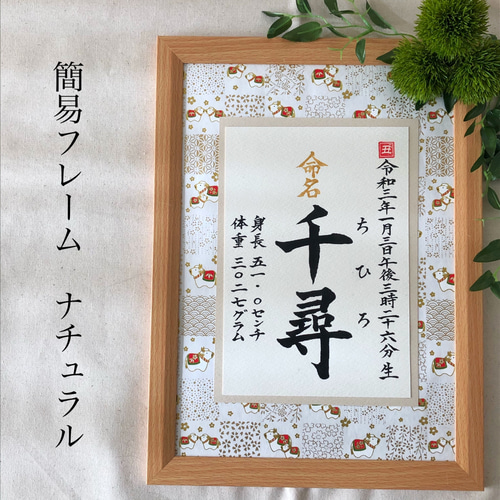 簡易フレーム ナチュラル
丑
令和三年一月三日午後三時二十六分生
ちひろ
命名
千尋
身長 五一・〇センチ
体重 三〇二七グラム